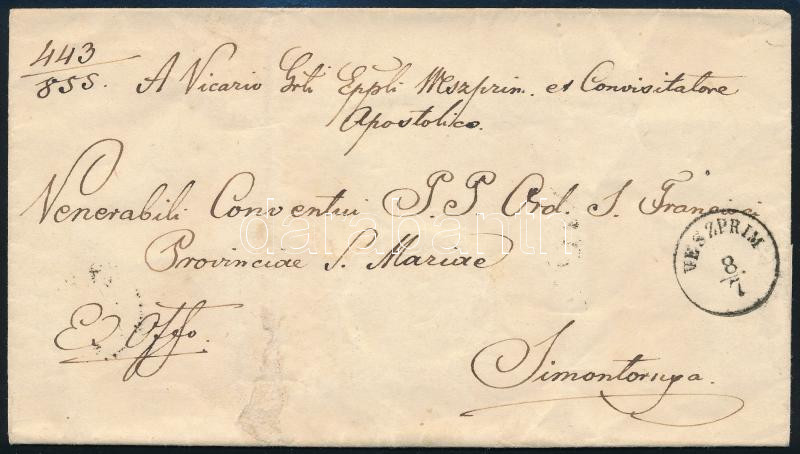 443
855.
A Vicario Grli Eppli Weszprim. et Convisitatore
Apostolico.
Venerabili Conventui P.P Ord. S. Francisci
Provinciae S. Mariae
Ex Offo.
Simontornya.
VESZPRIM
8/7
darabanth